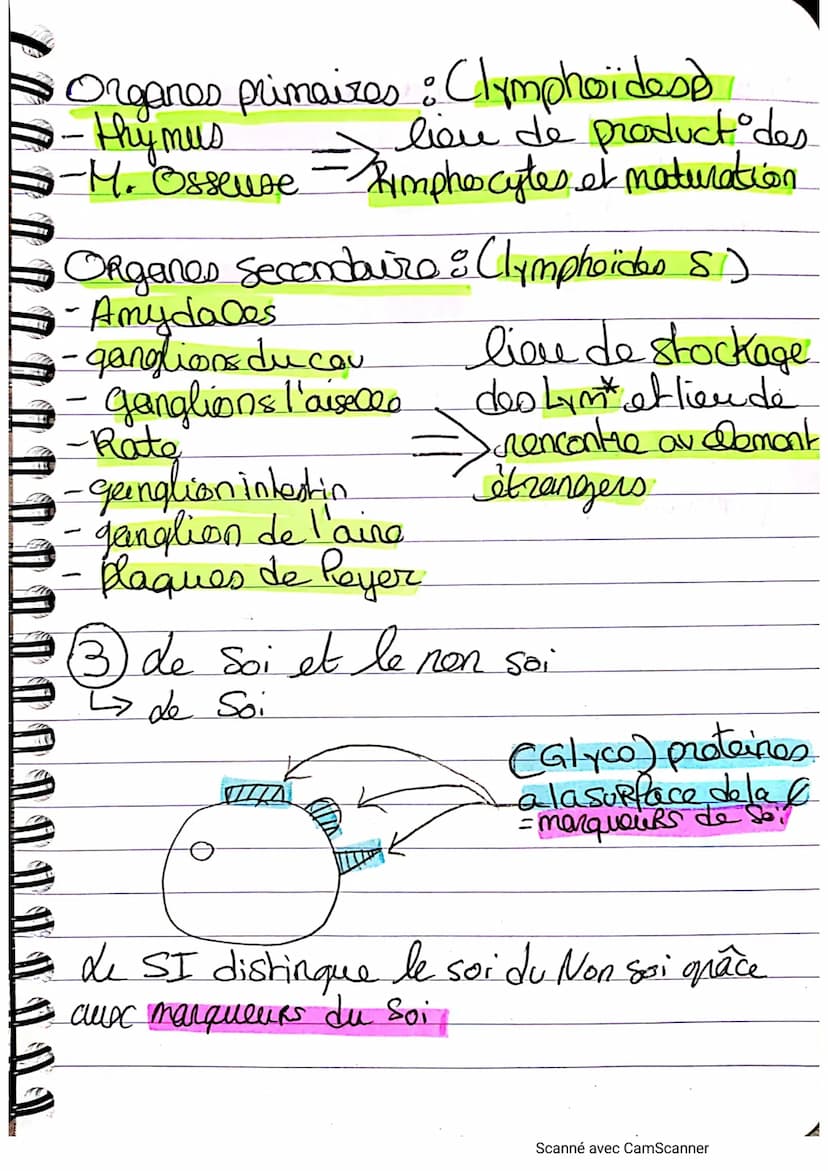 Organes primaires : (lymphoïdes)
- thymus
- M. Osseuse
=> lieu de product° des
lymphocytes et maturation
Organes secondaire : (lymphoïdes S)
- Amydales
- ganglions du cou
- ganglions l'aiselles
- Rate
- ganglion intestin
- ganglion de l'aine
- plaques de Peyer
=> lieu de stockage
des Lym* et lieu de
rencontre au élement
étrangers
③ Le Soi et le non soi
↳ Le Soi
(Glyco) proteines
a la surface de la C
= marqueurs de Soi
Le SI distingue le soi du Non soi grâce
aux marqueurs du Soi
Scanné avec CamScanner